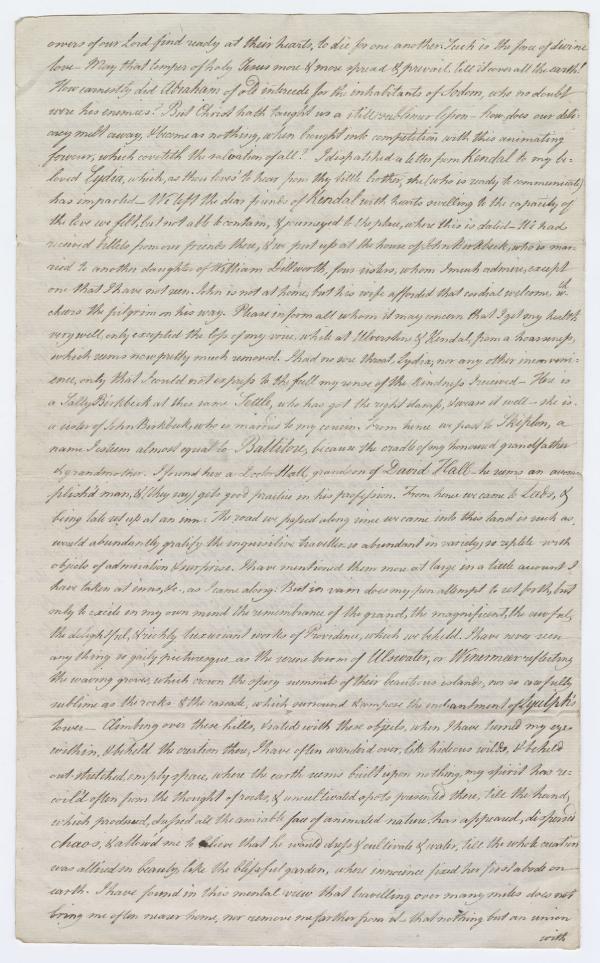 owers of our Lord find ready at their hearts, to die for one another. Such is the force of divine
love — May that temper of holy Jesus more & more spread & prevail till it cover all the earth!
How earnestly did Abraham of old intercede for the inhabitants of Sodom, who no doubt
were his enemies? But Christ hath taught us a still sublimer lesson — How does our deli-
cacy melt away, & become as nothing, when brought into competition with this animating
fervour, which coveteth the salvation of all? I dispatched a letter from Kendal to my be-
loved Lydia, which, as thou loves to hear from thy little brother, she (who is ready to communicate)
has imparted — We left the dear friends of Kendal with hearts swelling to the capacity of
the love we felt, but not able to contain, & journeyed to the place, where this is dated — We had
received billets from our friends there, & we put up at the house of John Birkbeck, who is mar-
ried to another daughter of William Dillworth, four sisters, whom I much admire, except
one that I have not seen. John is not at home, but his wife afforded that cordial welcome, wch
cheers the pilgrim on his way. Please inform all whom it may concern that I got my health
very well, only excepted the loss of my voice, while at Ulverston & Kendal, from a hoarseness,
which seems now pretty much removed. I had no sore throat, Lydia, nor any other inconveni-
ence, only that I could not express to the full my sense of the kindness I received — Here is
a Sally Birkbeck at this same Settle, who has got the right stamp, I swear it well — she is
a sister of John Birkbeck, who is married to my cousin. From hence we pass to Skipton, a
name I esteem almost equal to Ballitore, because the cradle of my honoured grandfather
& grandmother. I found here a Doctor Hall, grandson of David Hall — he seems an accom-
plish'd man, & (they say) gets good practice in his profession. From hence we came to Leeds, &
being late set up at an inn. The road we passed along since we came into this land is such as
would abundantly gratify the inquisitive traveller, so abundant in variety, so replete with
objects of admiration & surprise. I have mentioned them more at large in a little account I
have taken at inns, &c., as I came along. But in vain does my pen attempt to set forth, but
only to excite in my own mind the remembrance of the grand, the magnificent, the awful,
the delightful, & richly luxuriant works of Providence, which we beheld. I have never seen
any thing so gaily picturesque as the serene bosom of Ulswater, or Winermeer reflecting
the waving groves, which crown the spiry summits of their beauteous islands, nor so awfully
sublime as the rocks & the cascade, which surround & compose the enchantment of Lyulph's
tower — Climbing over these hills, & sated with these objects, when I have turned my eyes
within, & beheld the creation there, I have often wander'd over, like hideous wilds, & beheld
out-stretched, empty space, where the earth seems built upon nothing, my spirit has re-
coil'd often from the thought of rocks, & uncultivated spots presented there, till the hand,
which produced, & dressed all the amiable face of animated nature, has appeared, dispersed
chaos, & allow'd me to believe that he would dress & cultivate & water, till the whole creation
was altered in beauty, like the blissful garden, where innocence fixed her first abode on
earth. I have found in this mental view that travelling over many miles does not
bring me often nearer home, nor remove me farther from it — that nothing but an union
with